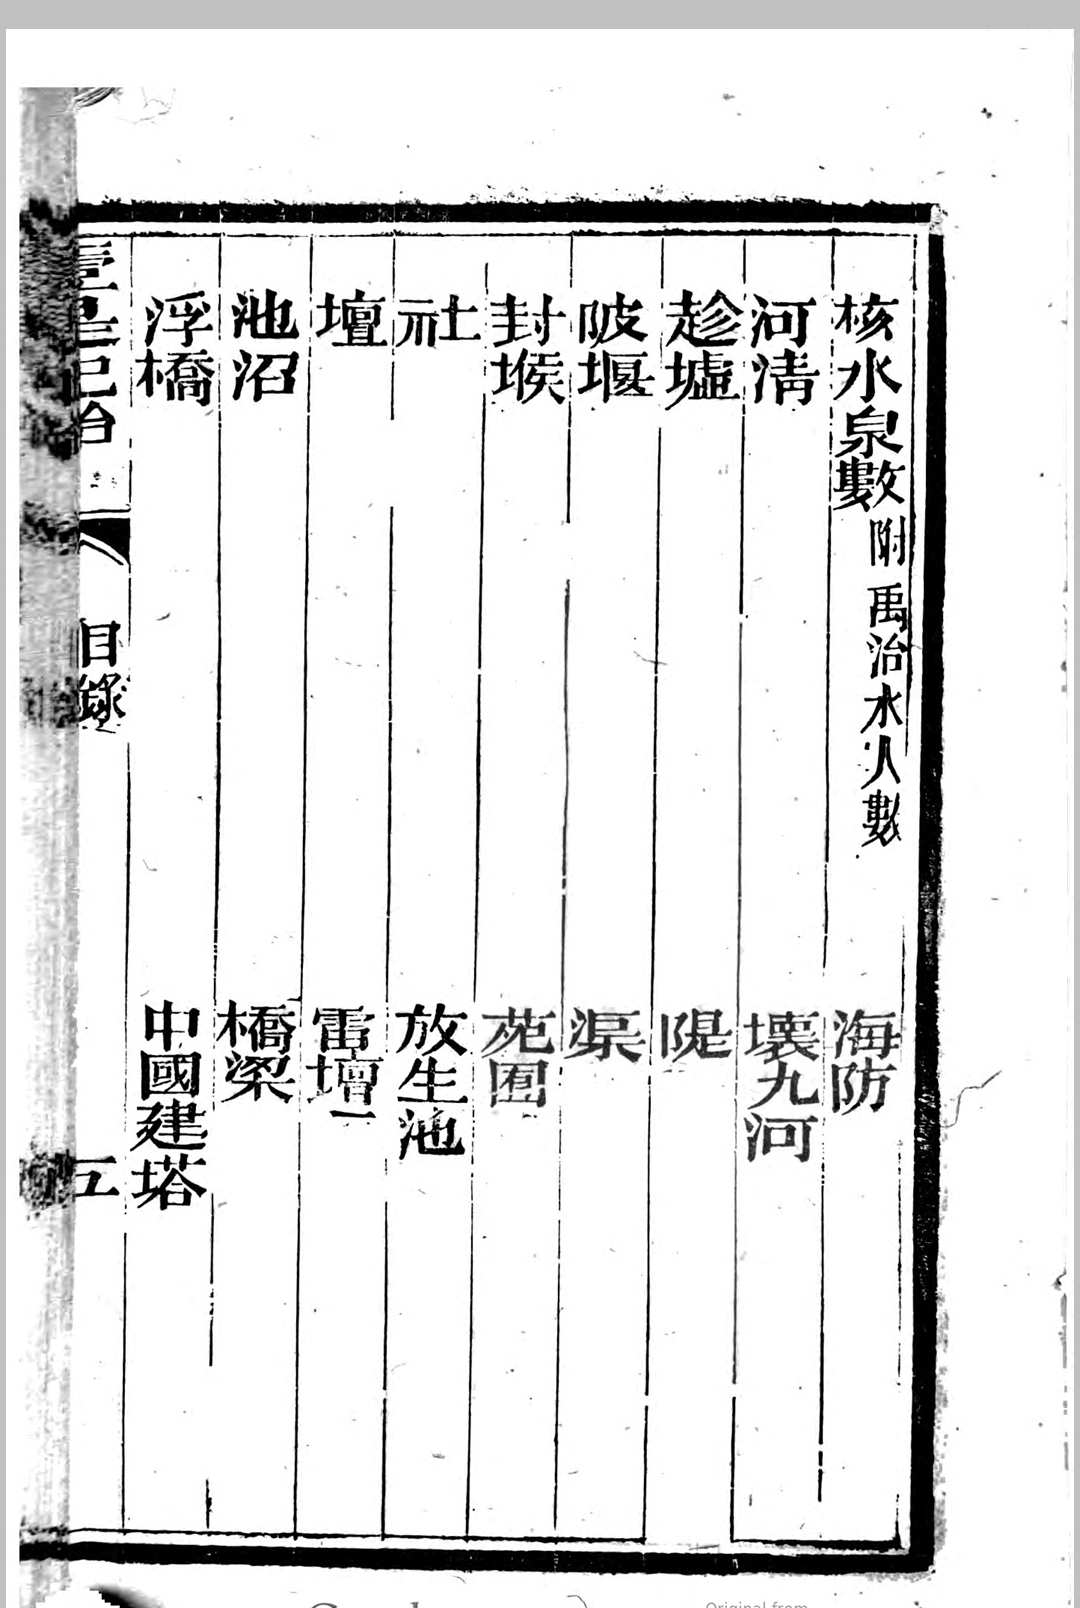 核水泉數附禹治水人數 海防
河清 壞九河
趁墟 隄
陂堰 渠
封堠 苑囿
社 放生池
壇 雷壇
池沼 橋梁
浮橋 中國建塔
目錄 五
Original from